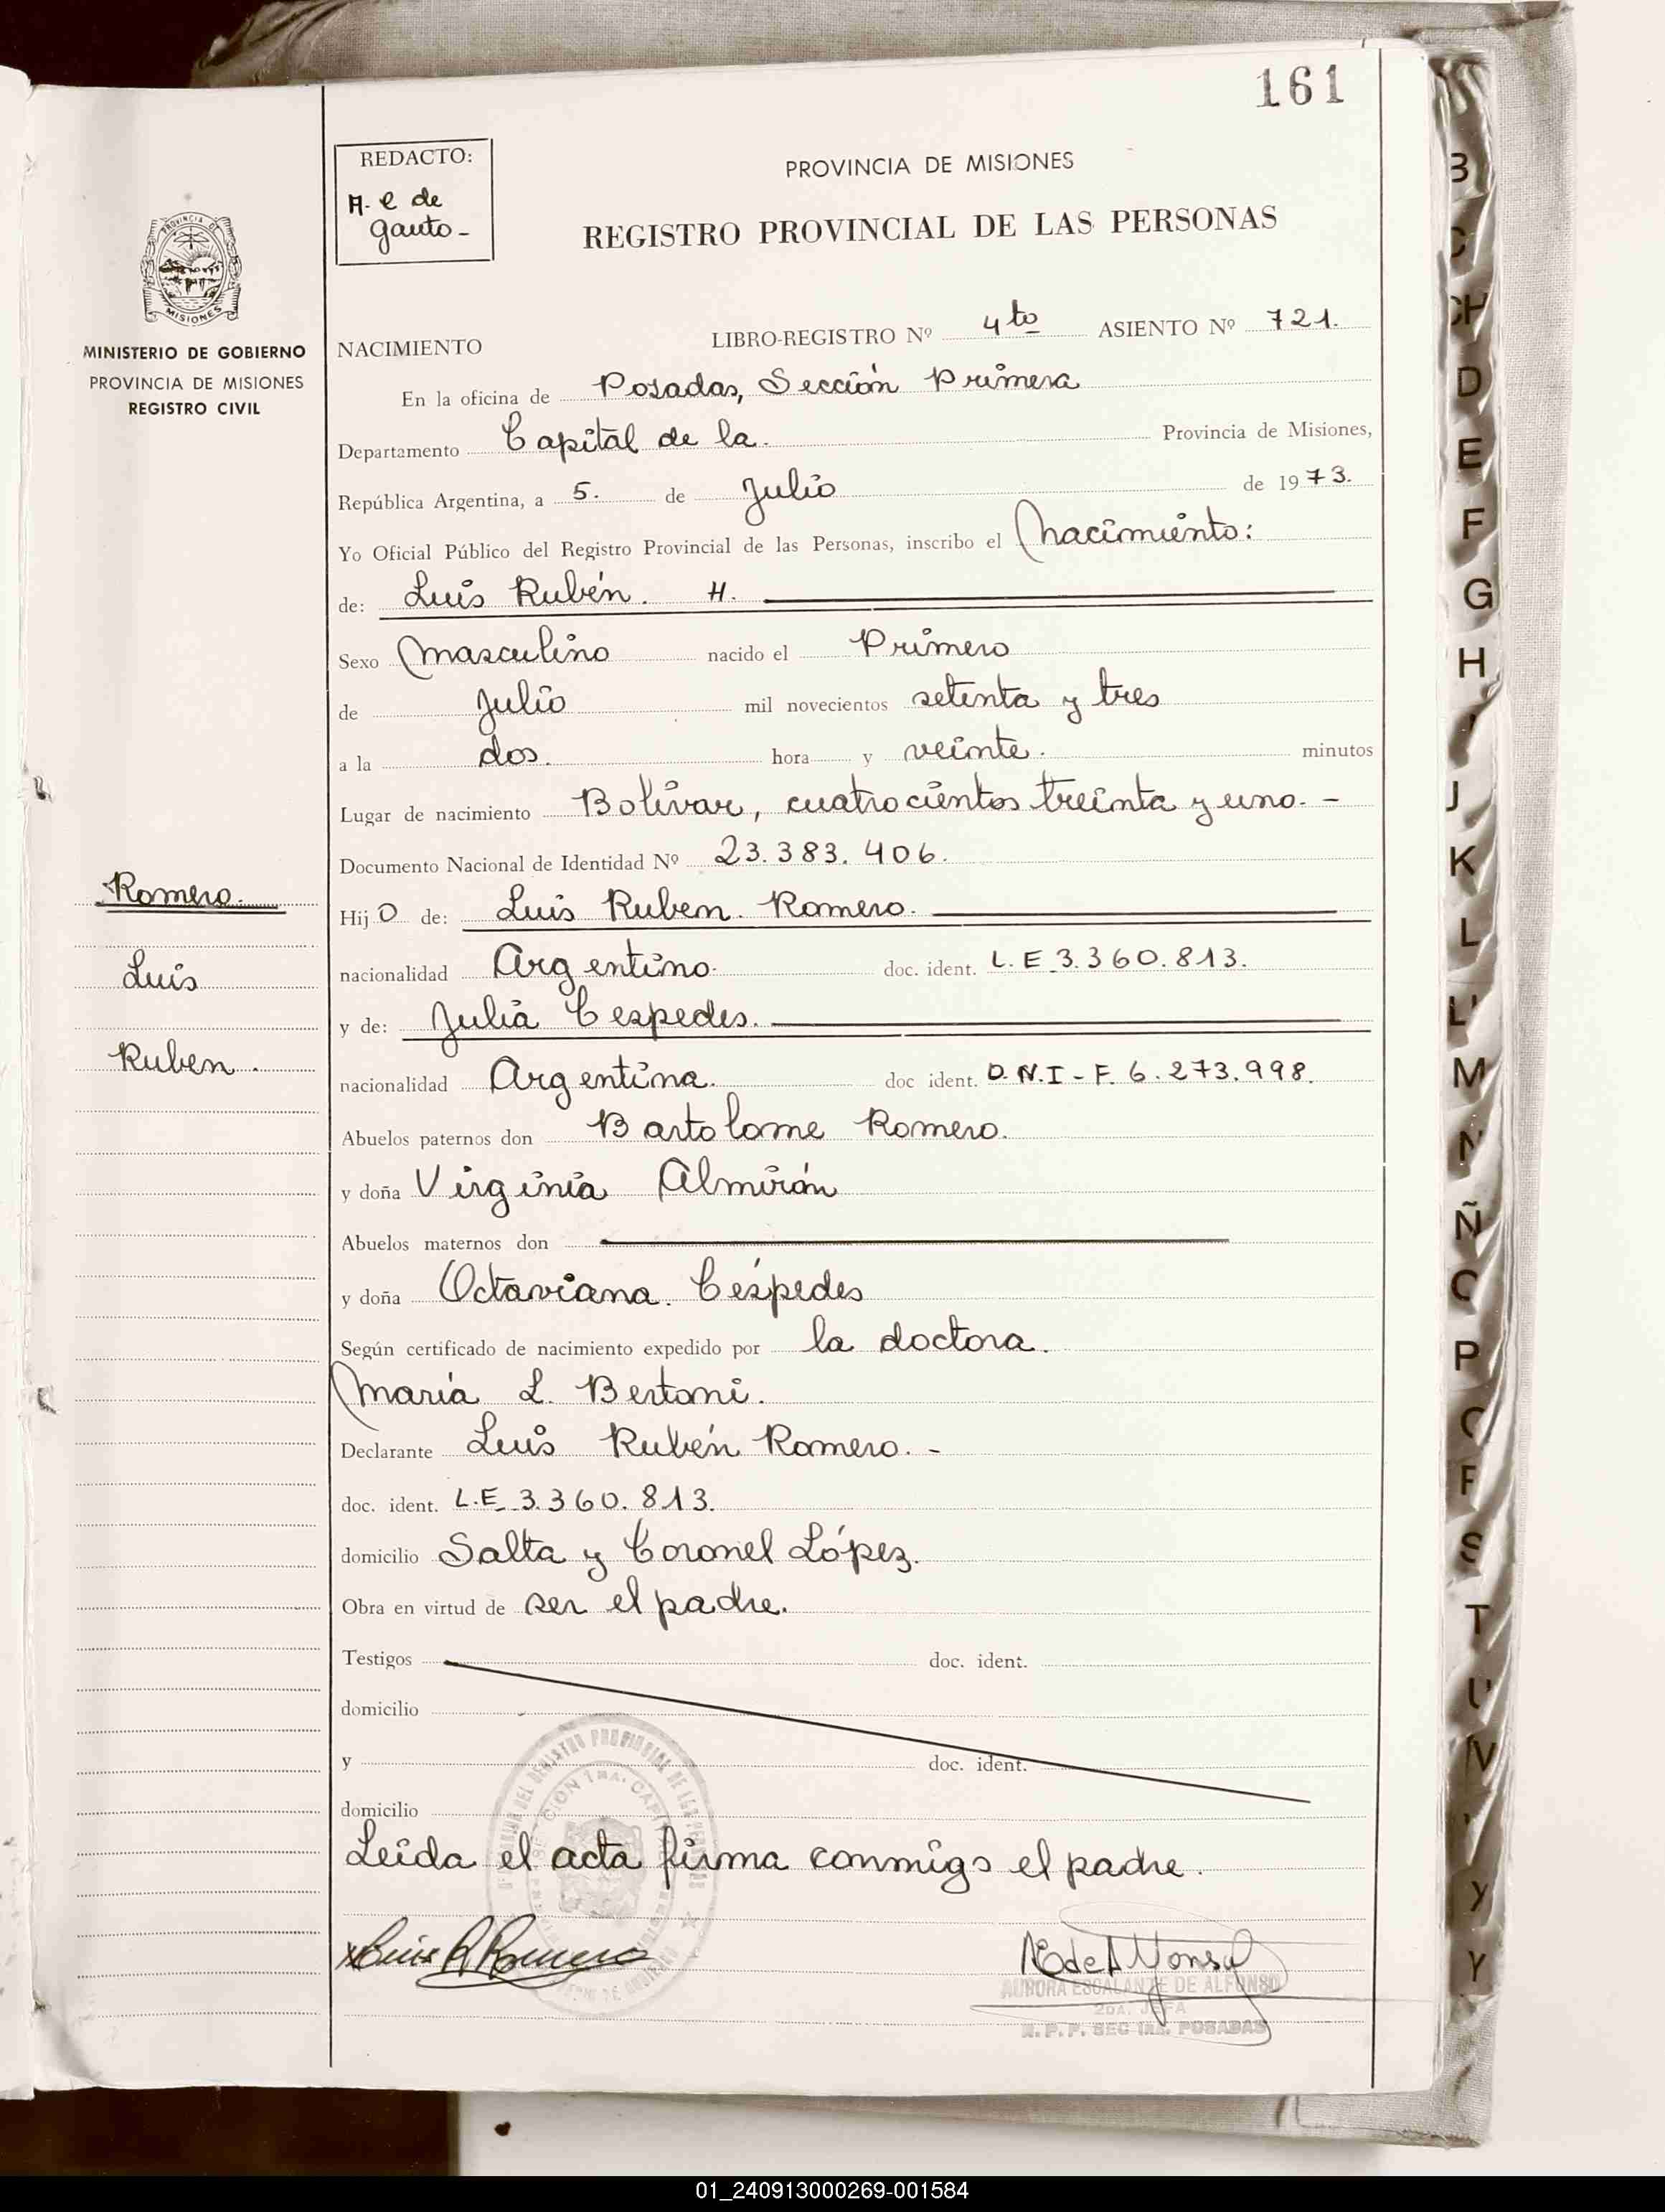 161
REDACTO:
A. e de
gauto-
PROVINCIA DE MISIONES
REGISTRO PROVINCIAL DE LAS PERSONAS
PROVINCIA DE
MISIONES
MINISTERIO DE GOBIERNO
PROVINCIA DE MISIONES
REGISTRO CIVIL
NACIMIENTO LIBRO-REGISTRO Nº 4to ASIENTO Nº 721.
En la oficina de Posadas, Sección Primera
Departamento Capital de la. Provincia de Misiones,
República Argentina, a 5. de Julio de 1973.
Yo Oficial Público del Registro Provincial de las Personas, inscribo el nacimiento:
de: Luis Rubén. H.
Sexo masculino nacido el Primero
de Julio mil novecientos setenta y tres
a la dos. hora y veinte. minutos
Lugar de nacimiento Bolívar, cuatrocientos treinta y uno. -
Documento Nacional de Identidad Nº 23.383.406.
Romero.
Luis
Ruben.
Hijo de: Luis Ruben. Romero.
nacionalidad Argentino. doc. ident. L.E 3.360.813.
y de: Julia Cespedes.
nacionalidad Argentina. doc ident. D.N.I - F. 6.273.998.
Abuelos paternos don Bartolome Romero.
y doña Virginia Almirón
Abuelos maternos don
y doña Octaviana. Céspedes
Según certificado de nacimiento expedido por la doctora.
María L. Bertoni.
Declarante Luis Rubén Romero. -
doc. ident. L.E 3.360.813.
domicilio Salta y Coronel López.
Obra en virtud de ser el padre.
Testigos doc. ident.
domicilio
y doc. ident.
domicilio
Leída el acta firma conmigo el padre.
Luis R Romero
AURORA ESCALANTE DE ALFONSO
2DA. JEFA
R. P. P. SEC 1RA. POSADAS
B
C
CH
D
E
F
G
H
I
J
K
L
LL
M
N
Ñ
O
P
Q
R
S
T
U
V
Y
01_240913000269-001584